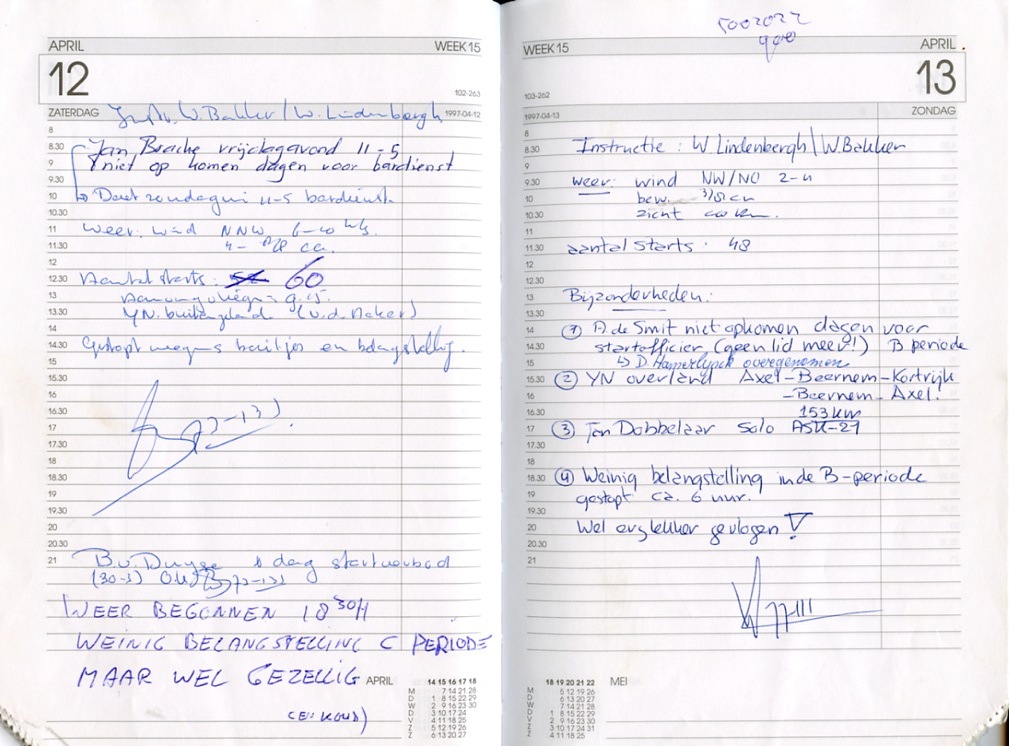 APRIL WEEK 15
12
102-263
ZATERDAG Instr. W. Bakker / W. Lindenbergh 1997-04-12
8
8.30 Jan Brache vrijdagavond 11-5
9 niet op komen dagen voor bardienst
9.30
10 ↳ Doet zondag 11-5 bardienst.
10.30
11 Weer: wind NNW 6-10
11.30
12
12.30 Aantal starts: 60
13
13.30 YN. buitengeland (v.d. Maker)
14
14.30 Gestopt wegens en belangstelling.
15
15.30
16
16.30
17
17.30
18
18.30
19
19.30
20
20.30
21 B.v. Duyse dag startverbod
(30-3)
WEER BEGONNEN 18 30H
WEINIG BELANGSTELLING C PERIODE
MAAR WEL GEZELLIG
(EN KOUD)
APRIL 14 15 16 17 18
M 7 14 21 28
D 1 8 15 22 29
W 2 9 16 23 30
D 3 10 17 24
V 4 11 18 25
Z 5 12 19 26
Z 6 13 20 27
WEEK 15 APRIL
13
103-262
1997-04-13 ZONDAG
8
8.30 Instructie: W. Lindenbergh / W Bakker
9
9.30 weer: wind NW/NO 2-4
10 bew. 3/8
10.30 zicht
11
11.30 aantal starts: 48
12
12.30
13 Bijzonderheden:
13.30
14 ① A de Smit niet opkomen dagen voor
14.30 startofficier (geen lid meer!) B periode
15 ↳ D. Hamerlynck overgenomen
15.30 ② YN overland Axel-Beernem-Kortrijk
16 -Beernem-Axel.
16.30 153 km
17 ③ Jan Dobbelaar Solo ASK-21
17.30
18
18.30 ④ Weinig belangstelling in de B-periode
19 gestopt ca. 6 uur.
19.30
20 Wel erg lekker gevlogen!
20.30
21
18 19 20 21 22 MEI
M 5 12 19 26
D 6 13 20 27
W 7 14 21 28
D 1 8 15 22 29
V 2 9 16 23 30
Z 3 10 17 24 31
Z 4 11 18 25